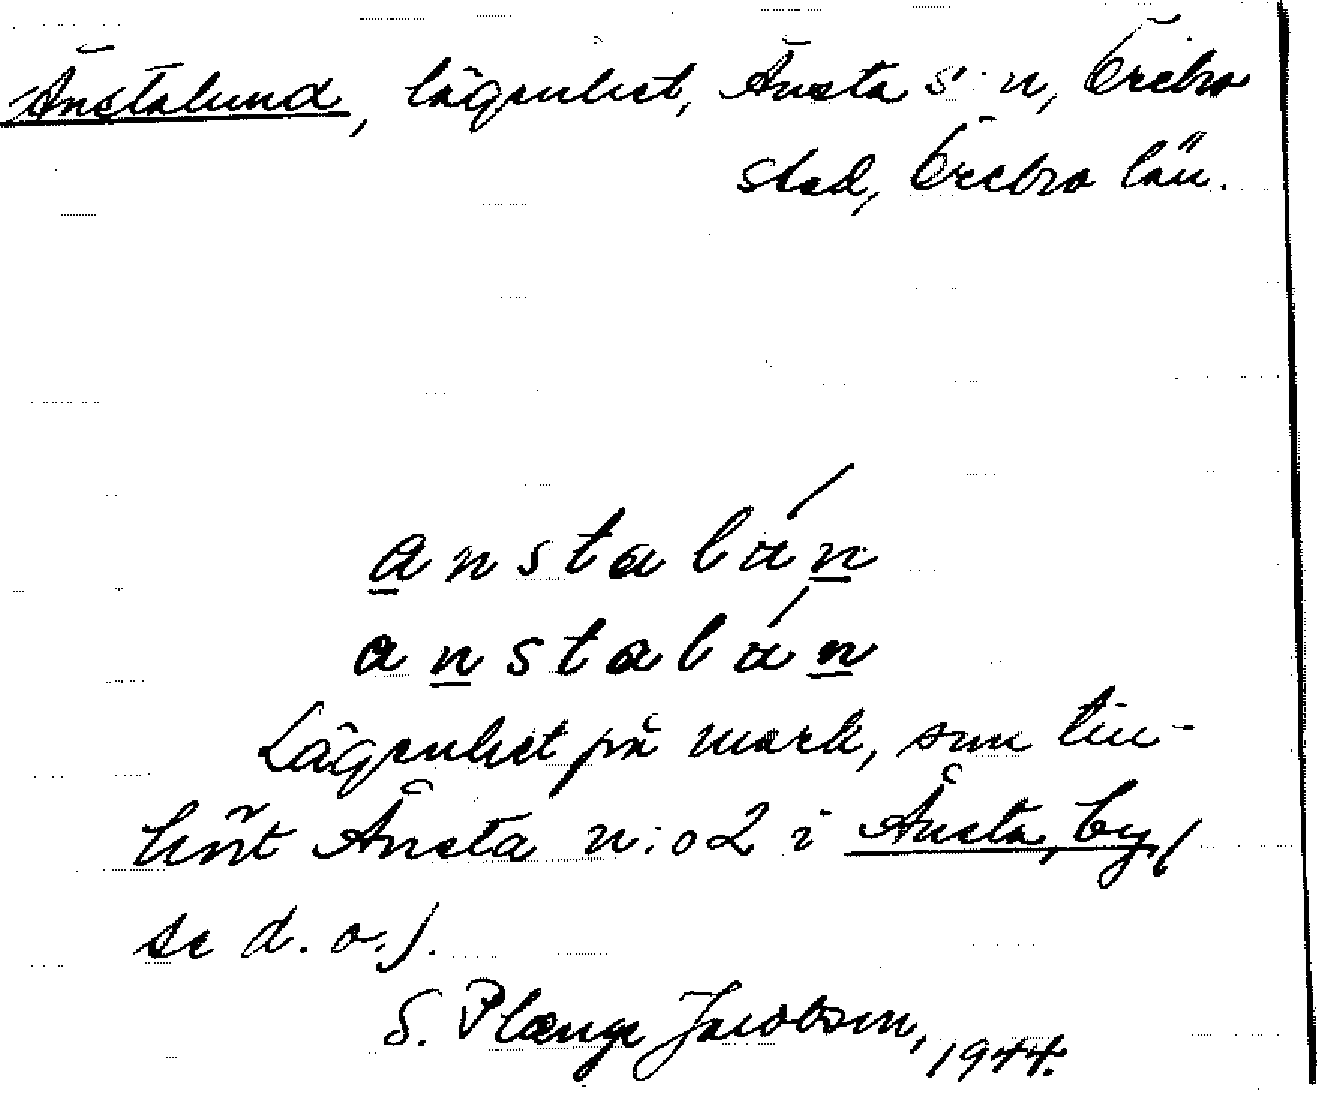 Änstalund, lägenhet, Ånsta s:n, Örebro
stad, Örebro län.
anstalán
anstalán
Lägenhet på mark, som till-
hört Ånsta n:o 2 i Ånsta, by (
se d. o.).
S. Plænge Jacobson, 1944.